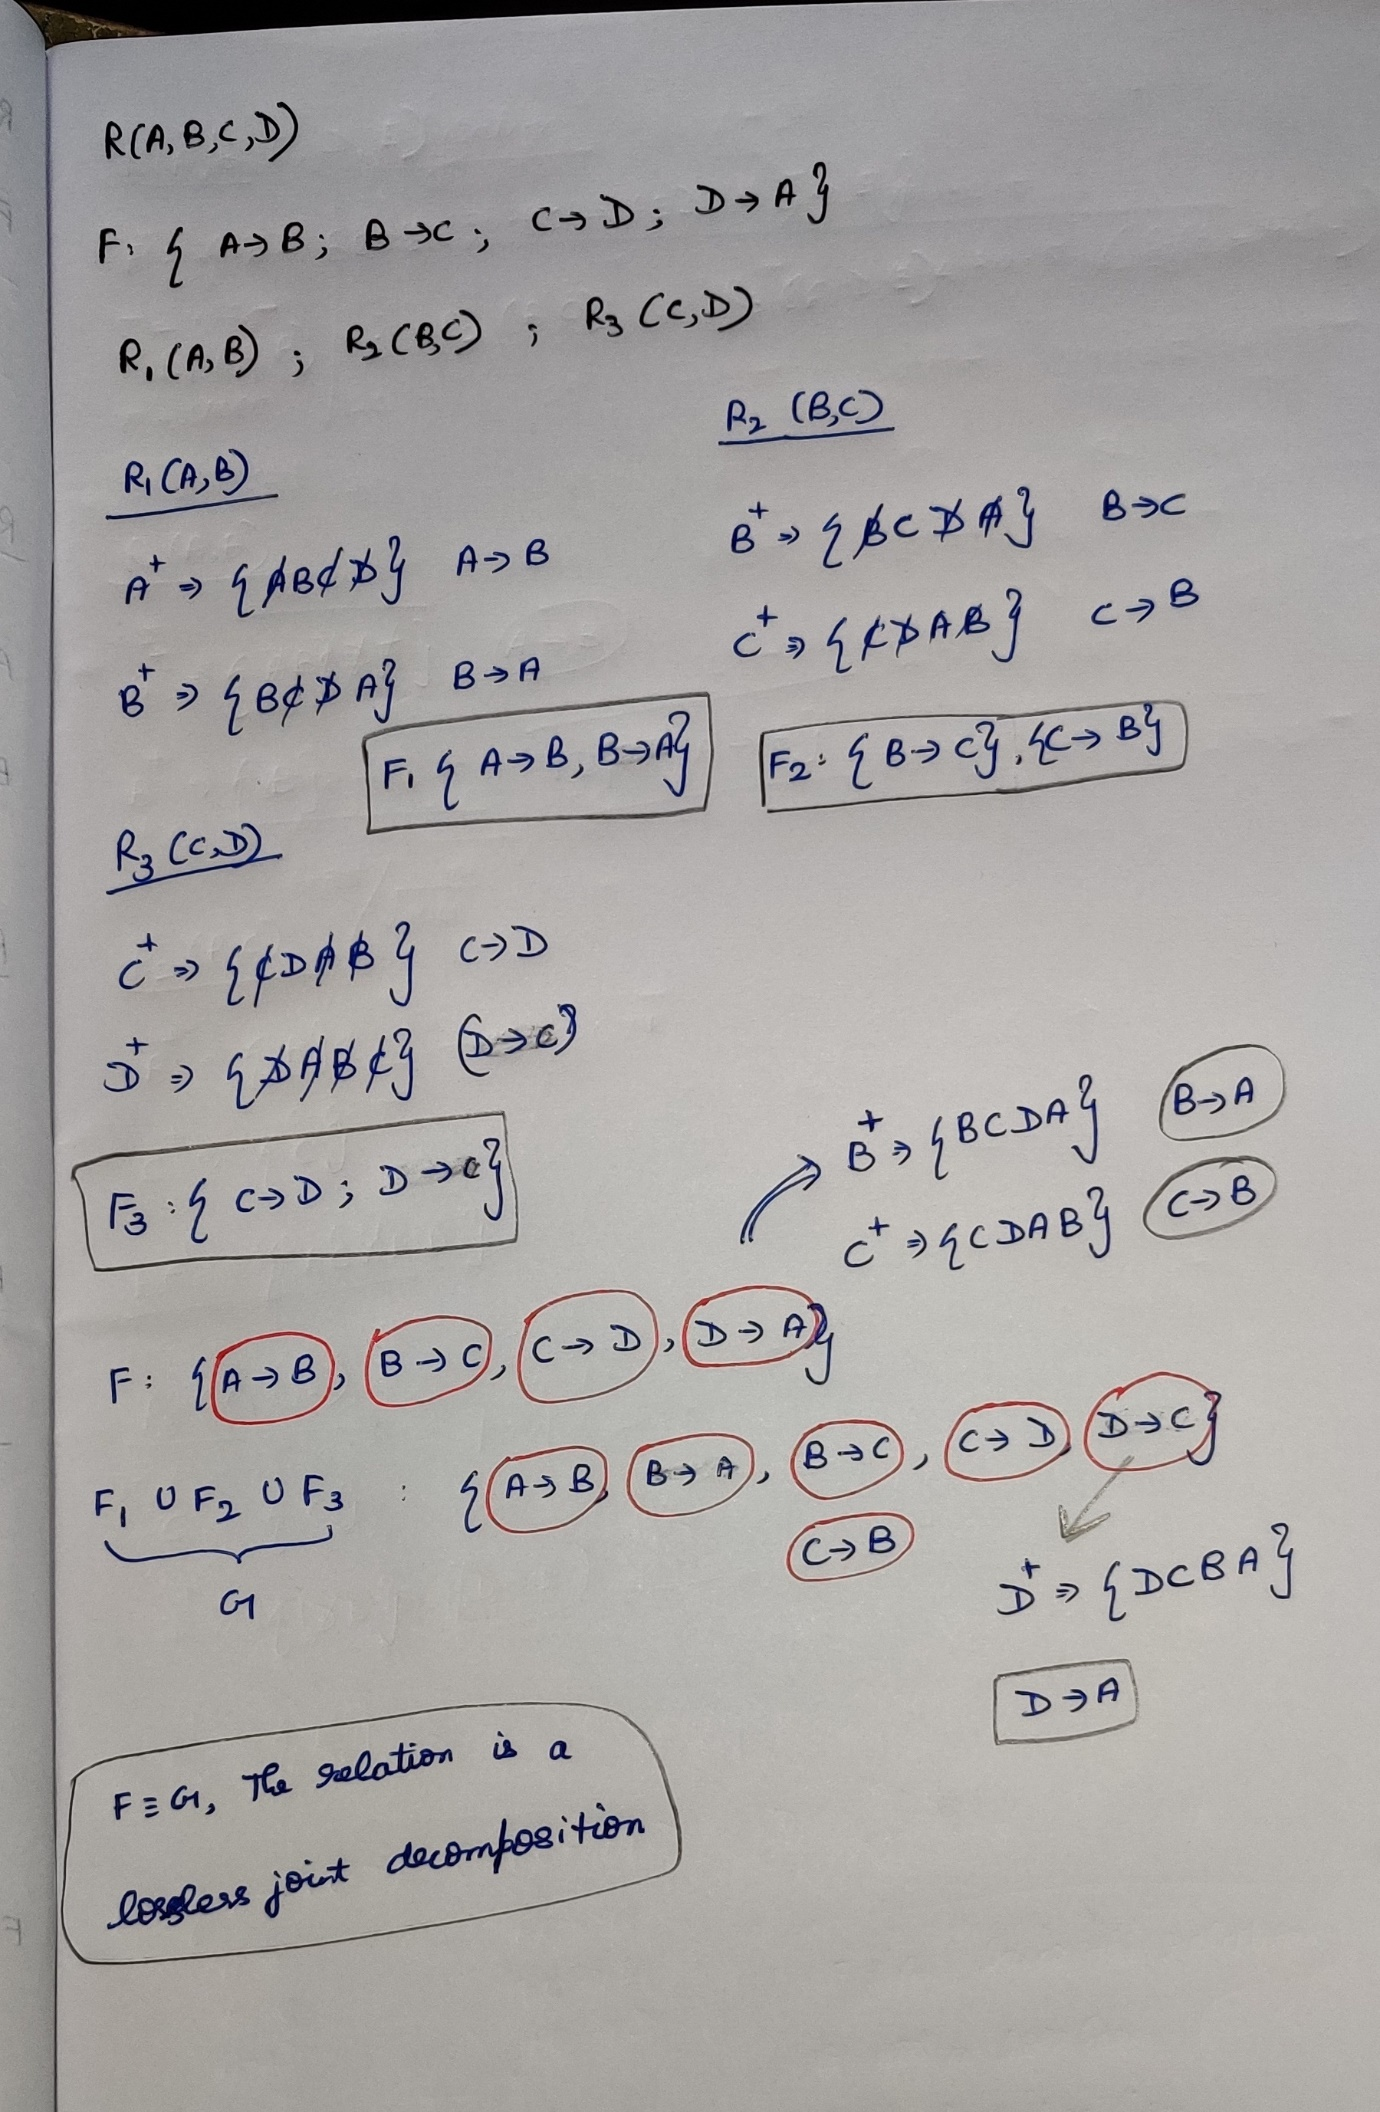 R(A,B,C,D)
F: { A→B; B→C; C→D; D→A}
R₁(A,B) ; R₂(B,C) ; R₃(C,D)
R₁(A,B)
A⁺ ⇒ {ABCD} A→B
B⁺ ⇒ {BCDA} B→A
F₁ { A→B, B→A}
R₂ (B,C)
B⁺ ⇒ {BCDA} B→C
C⁺ ⇒ {CDAB} C→B
F₂: {B→C}, {C→B}
R₃(C,D)
C⁺ ⇒ {CDAB} C→D
D⁺ ⇒ {DABC} {D→C}
F₃: { C→D; D→C}
B⁺ ⇒ {BCDA} B→A
C⁺ ⇒ {CDAB} C→B
F: {A→B, B→C, C→D, D→A}
F₁ ∪ F₂ ∪ F₃ : {A→B, B→A, B→C, C→D, D→C}
C→B
G
D⁺ ⇒ {DCBA}
D→A
F≡G, The relation is a
lossless joint decomposition